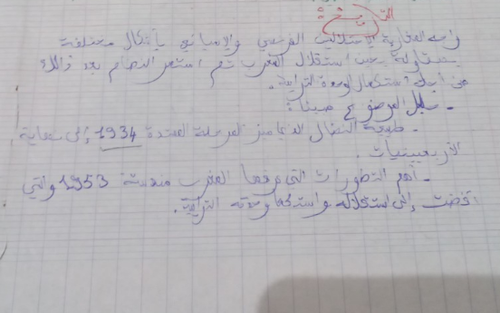 التاريخ
واجه المغاربة الاستغلال الفرنسي والإسباني بأشكال مختلفة
استقلال المغرب ثم استمر النضال بعد ذالك
من أجل استكمال الوحدة الترابية.
- حلل الموضوع مبينا:
- طبيعة النضال الذي ميز المرحلة الممتدة 1934 إلى نهاية
الأربعينيات.
- أهم التطورات التي عرفها المغرب منذ سنة 1953 والتي
أفضت إلى استقلاله واستكمال وحدته الترابية.